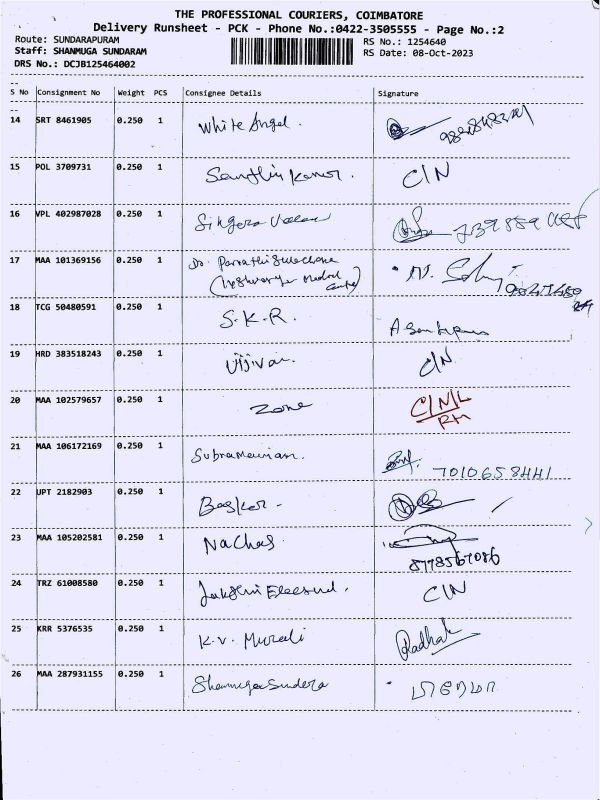 THE PROFESSIONAL COURIERS, COIMBATORE
Delivery Runsheet - PCK - Phone No.:0422-3505555 - Page No.:2
Route: SUNDARAPURAM RS No.: 1254640
Staff: SHANMUGA SUNDARAM RS Date: 08-Oct-2023
DRS No.: DCJB125464002
S No Consignment No Weight PCS Consignee Details Signature
14 SRT 8461905 0.250 1 White Angel.
15 POL 3709731 0.250 1 C/N
16 VPL 402987028 0.250 1
17 MAA 101369156 0.250 1 Dr.
Medical
18 TCG 50480591 0.250 1 S.K.R.
19 HRD 383518243 0.250 1 C/N.
20 MAA 102579657 0.250 1 Zone C/N/L
RM
21 MAA 106172169 0.250 1 Subramanian. 7010658441
22 UPT 2182903 0.250 1 Basker -
23 MAA 105202581 0.250 1 Nachas.
8778567086
24 TRZ 61008580 0.250 1 C/N
25 KRR 5376535 0.250 1 K.V. Murali Radhak
26 MAA 287931155 0.250 1